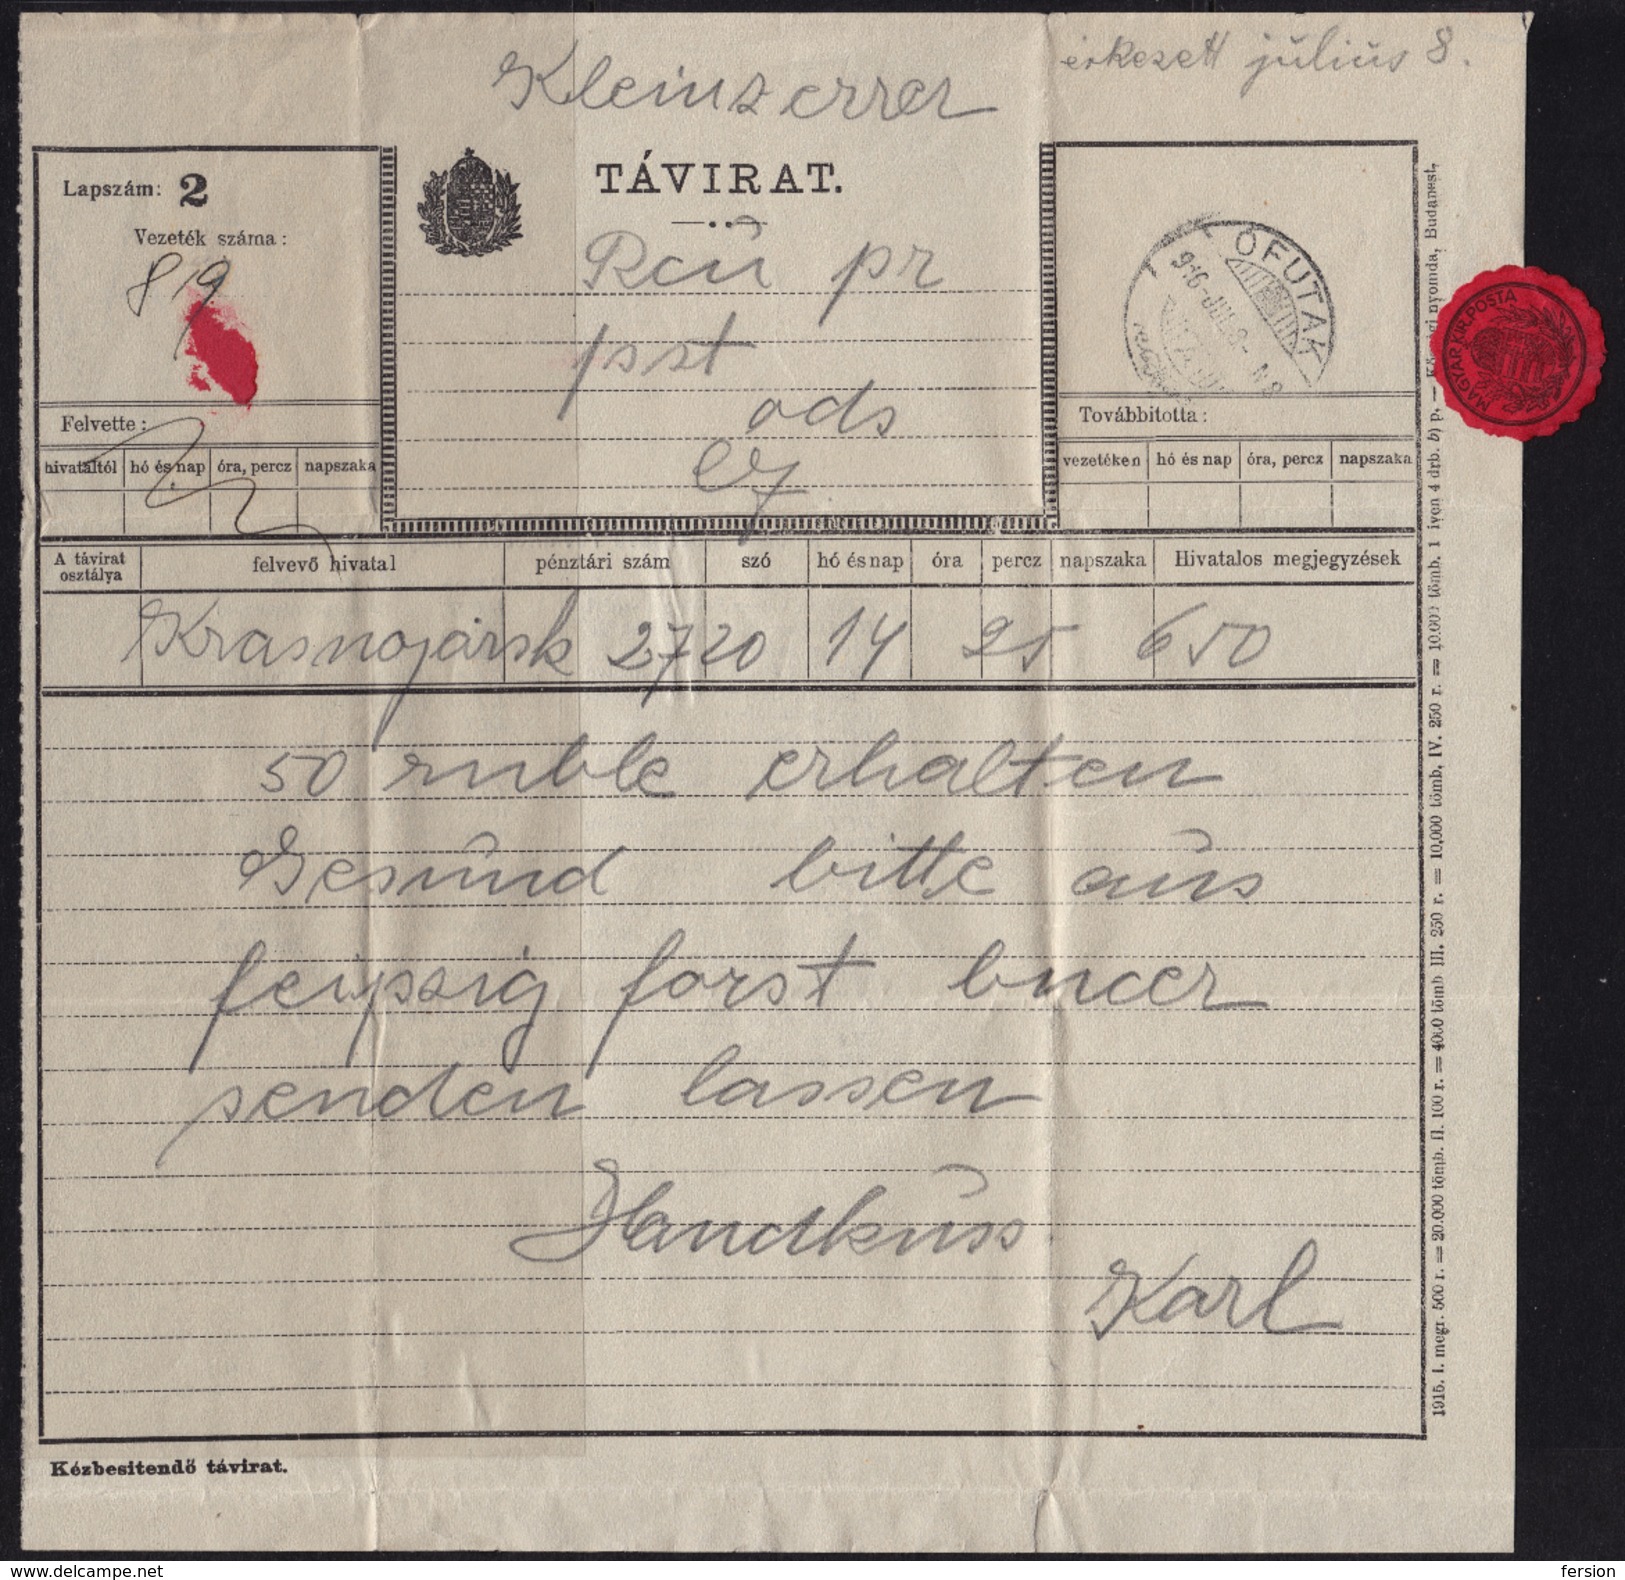 érkezett július 8.
Kleinzerrer
TÁVIRAT.
Lapszám: 2
Vezeték száma:
819
Rcü pr
psst
ods
ÓFUTAK
916-JUL.8-N8
MAGYAR KIR. POSTA
Felvette:
Továbbitotta:
hivataltól hó és nap óra, percz napszaka
vezetéken hó és nap óra, percz napszaka
A távirat osztálya felvevő hivatal pénztári szám szó hó és nap óra percz napszaka Hivatalos megjegyzések
Krasnojársk 27 20 14 25 650
50 ruble erhalten
Gesund bitte aus
feipszig forst bncer
senden lassen
Handkuss
Karl
Kézbesitendő távirat.
1915. I. megr. 500 r. = 20.000 tömb. II. 100 r. = 4000 tömb III. 250 r. = 10,000 tömb, IV. 250 r. = 10.000 tömb. 1 iven 4 drb. b) p. — nyomda, Budapest.
fersion